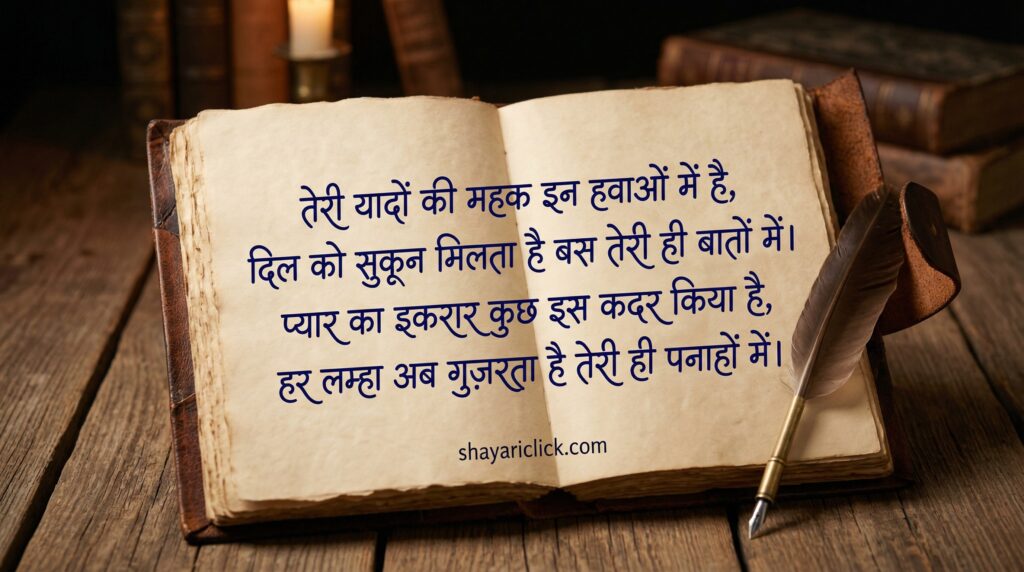 तेरी यादों की महक इन हवाओं में है,
दिल को सुकून मिलता है बस तेरी ही बातों में।
प्यार का इकरार कुछ इस कदर किया है,
हर लम्हा अब गुज़रता है तेरी ही पनाहों में।
shayariclick.com